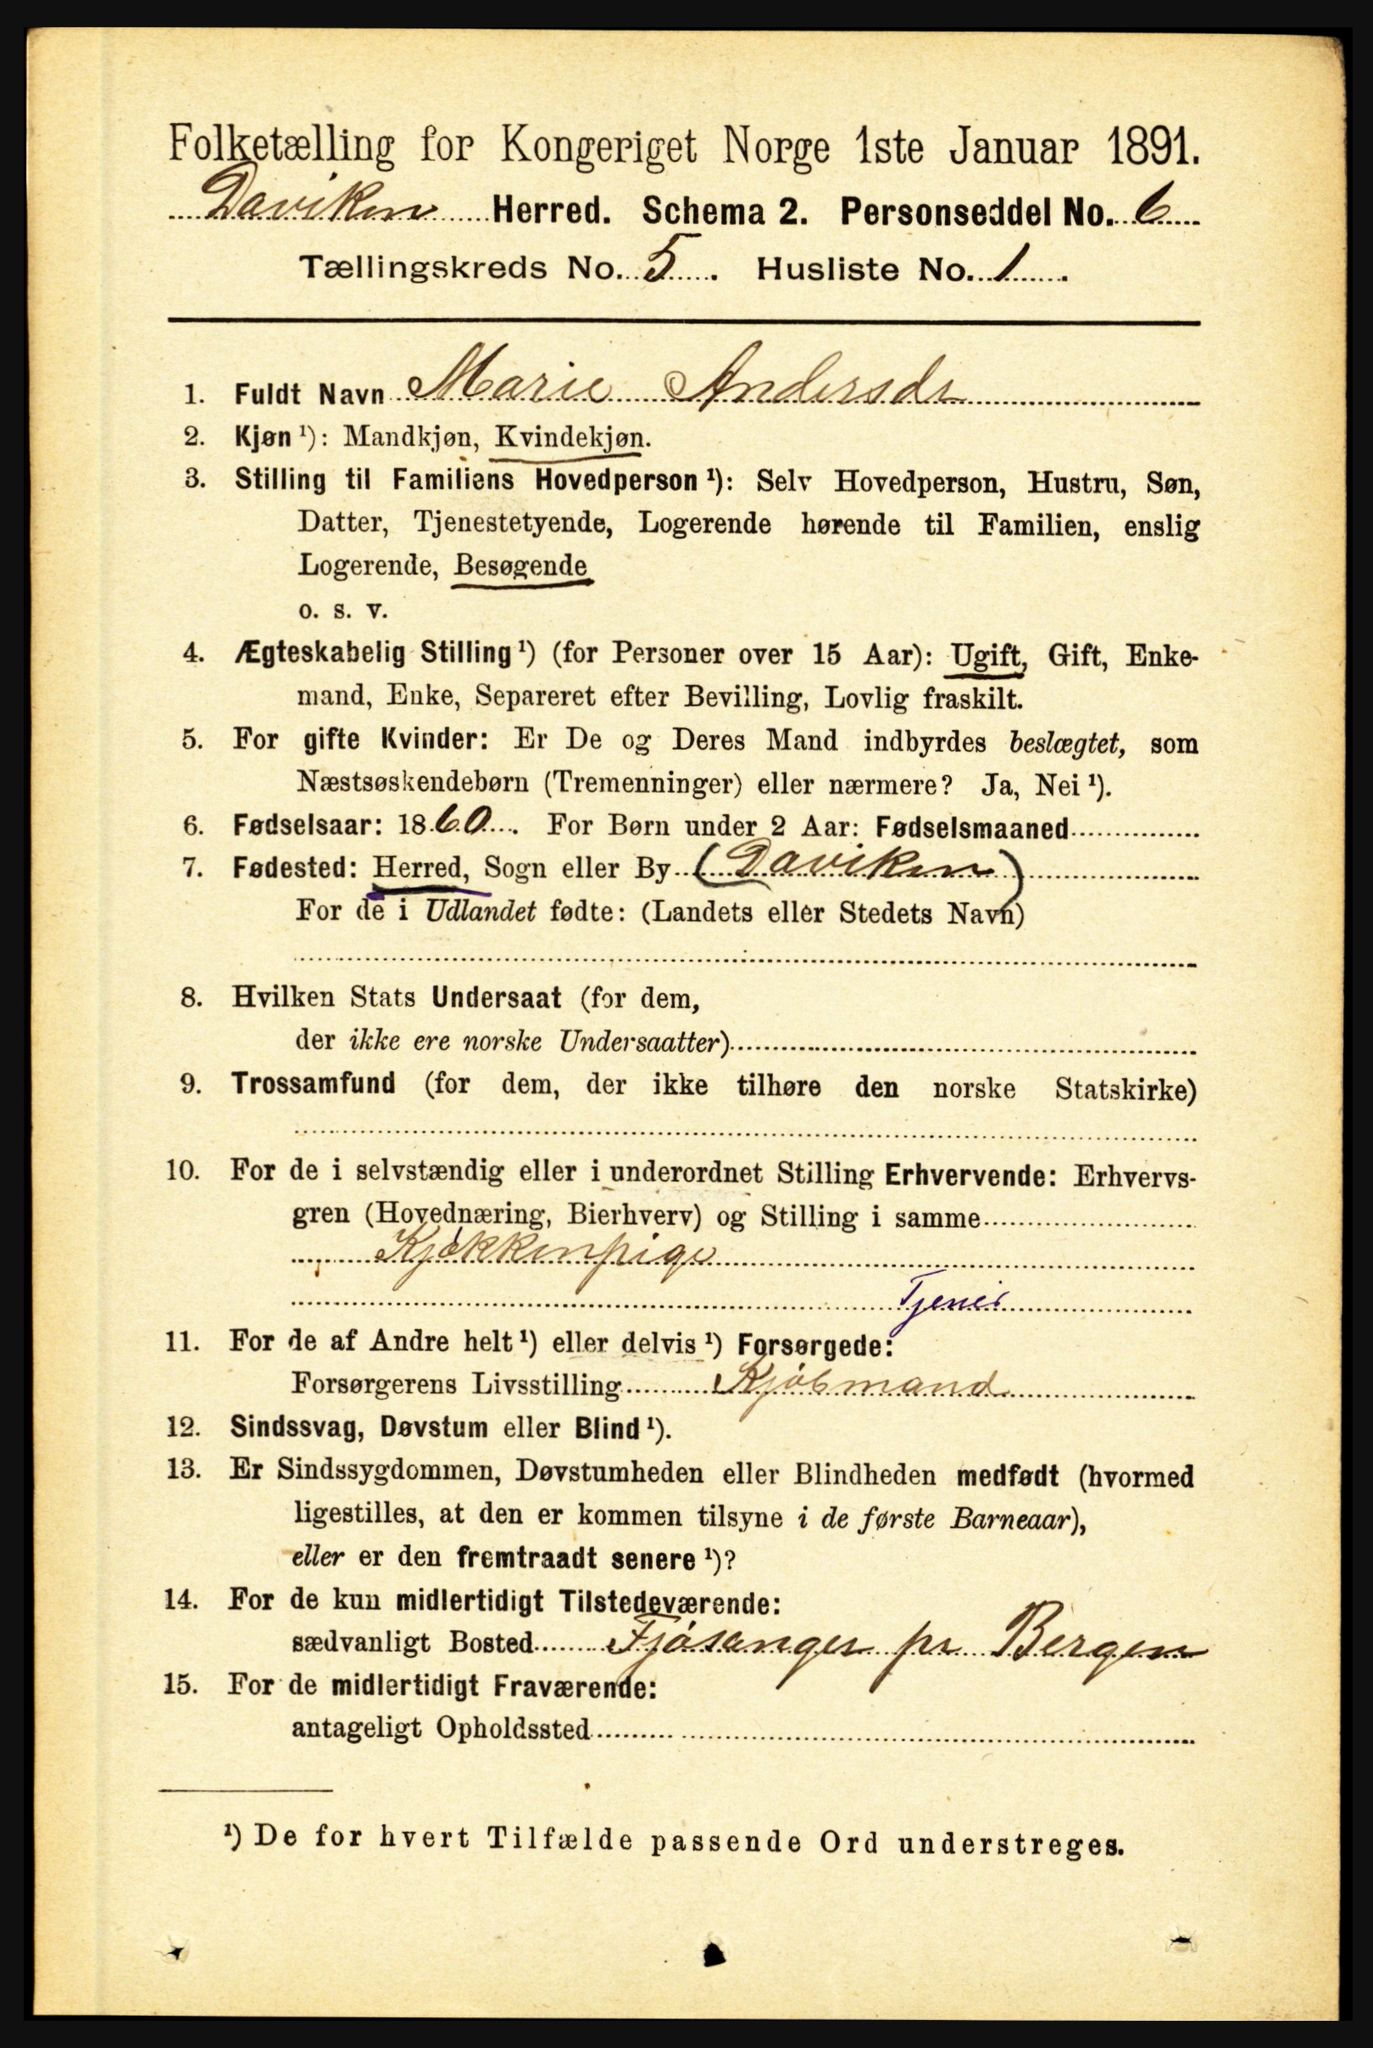 Folketælling for Kongeriget Norge 1ste Januar 1891.
Daviken Herred. Schema 2. Personseddel No. 6
Tællingskreds No. 5. Husliste No. 1.
1. Fuldt Navn Marie Andersdr
2. Kjøn ¹): Mandkjøn, Kvindekjøn.
3. Stilling til Familiens Hovedperson ¹): Selv Hovedperson, Hustru, Søn,
Datter, Tjenestetyende, Logerende hørende til Familien, enslig
Logerende, Besøgende
o. s. v.
4. Ægteskabelig Stilling ¹) (for Personer over 15 Aar): Ugift, Gift, Enke-
mand, Enke, Separeret efter Bevilling, Lovlig fraskilt.
5. For gifte Kvinder: Er De og Deres Mand indbyrdes beslægtet, som
Næstsøskendebørn (Tremenninger) eller nærmere? Ja, Nei ¹).
6. Fødselsaar: 1860. For Børn under 2 Aar: Fødselsmaaned
7. Fødested: Herred, Sogn eller By (Daviken)
For de i Udlandet fødte: (Landets eller Stedets Navn)
8. Hvilken Stats Undersaat (for dem,
der ikke ere norske Undersaatter)
9. Trossamfund (for dem, der ikke tilhøre den norske Statskirke)
10. For de i selvstændig eller i underordnet Stilling Erhvervende: Erhvervs-
gren (Hovednæring, Bierhverv) og Stilling i samme
Kjøkkenpige
Tjener
11. For de af Andre helt ¹) eller delvis ¹) Forsørgede:
Forsørgerens Livsstilling Kjøbmand
12. Sindssvag, Døvstum eller Blind ¹).
13. Er Sindssygdommen, Døvstumheden eller Blindheden medfødt (hvormed
ligestilles, at den er kommen tilsyne i de første Barneaar),
eller er den fremtraadt senere ¹)?
14. For de kun midlertidigt Tilstedeværende:
sædvanligt Bosted Fjøsanger pr Bergen
15. For de midlertidigt Fraværende:
antageligt Opholdssted
¹) De for hvert Tilfælde passende Ord understreges.